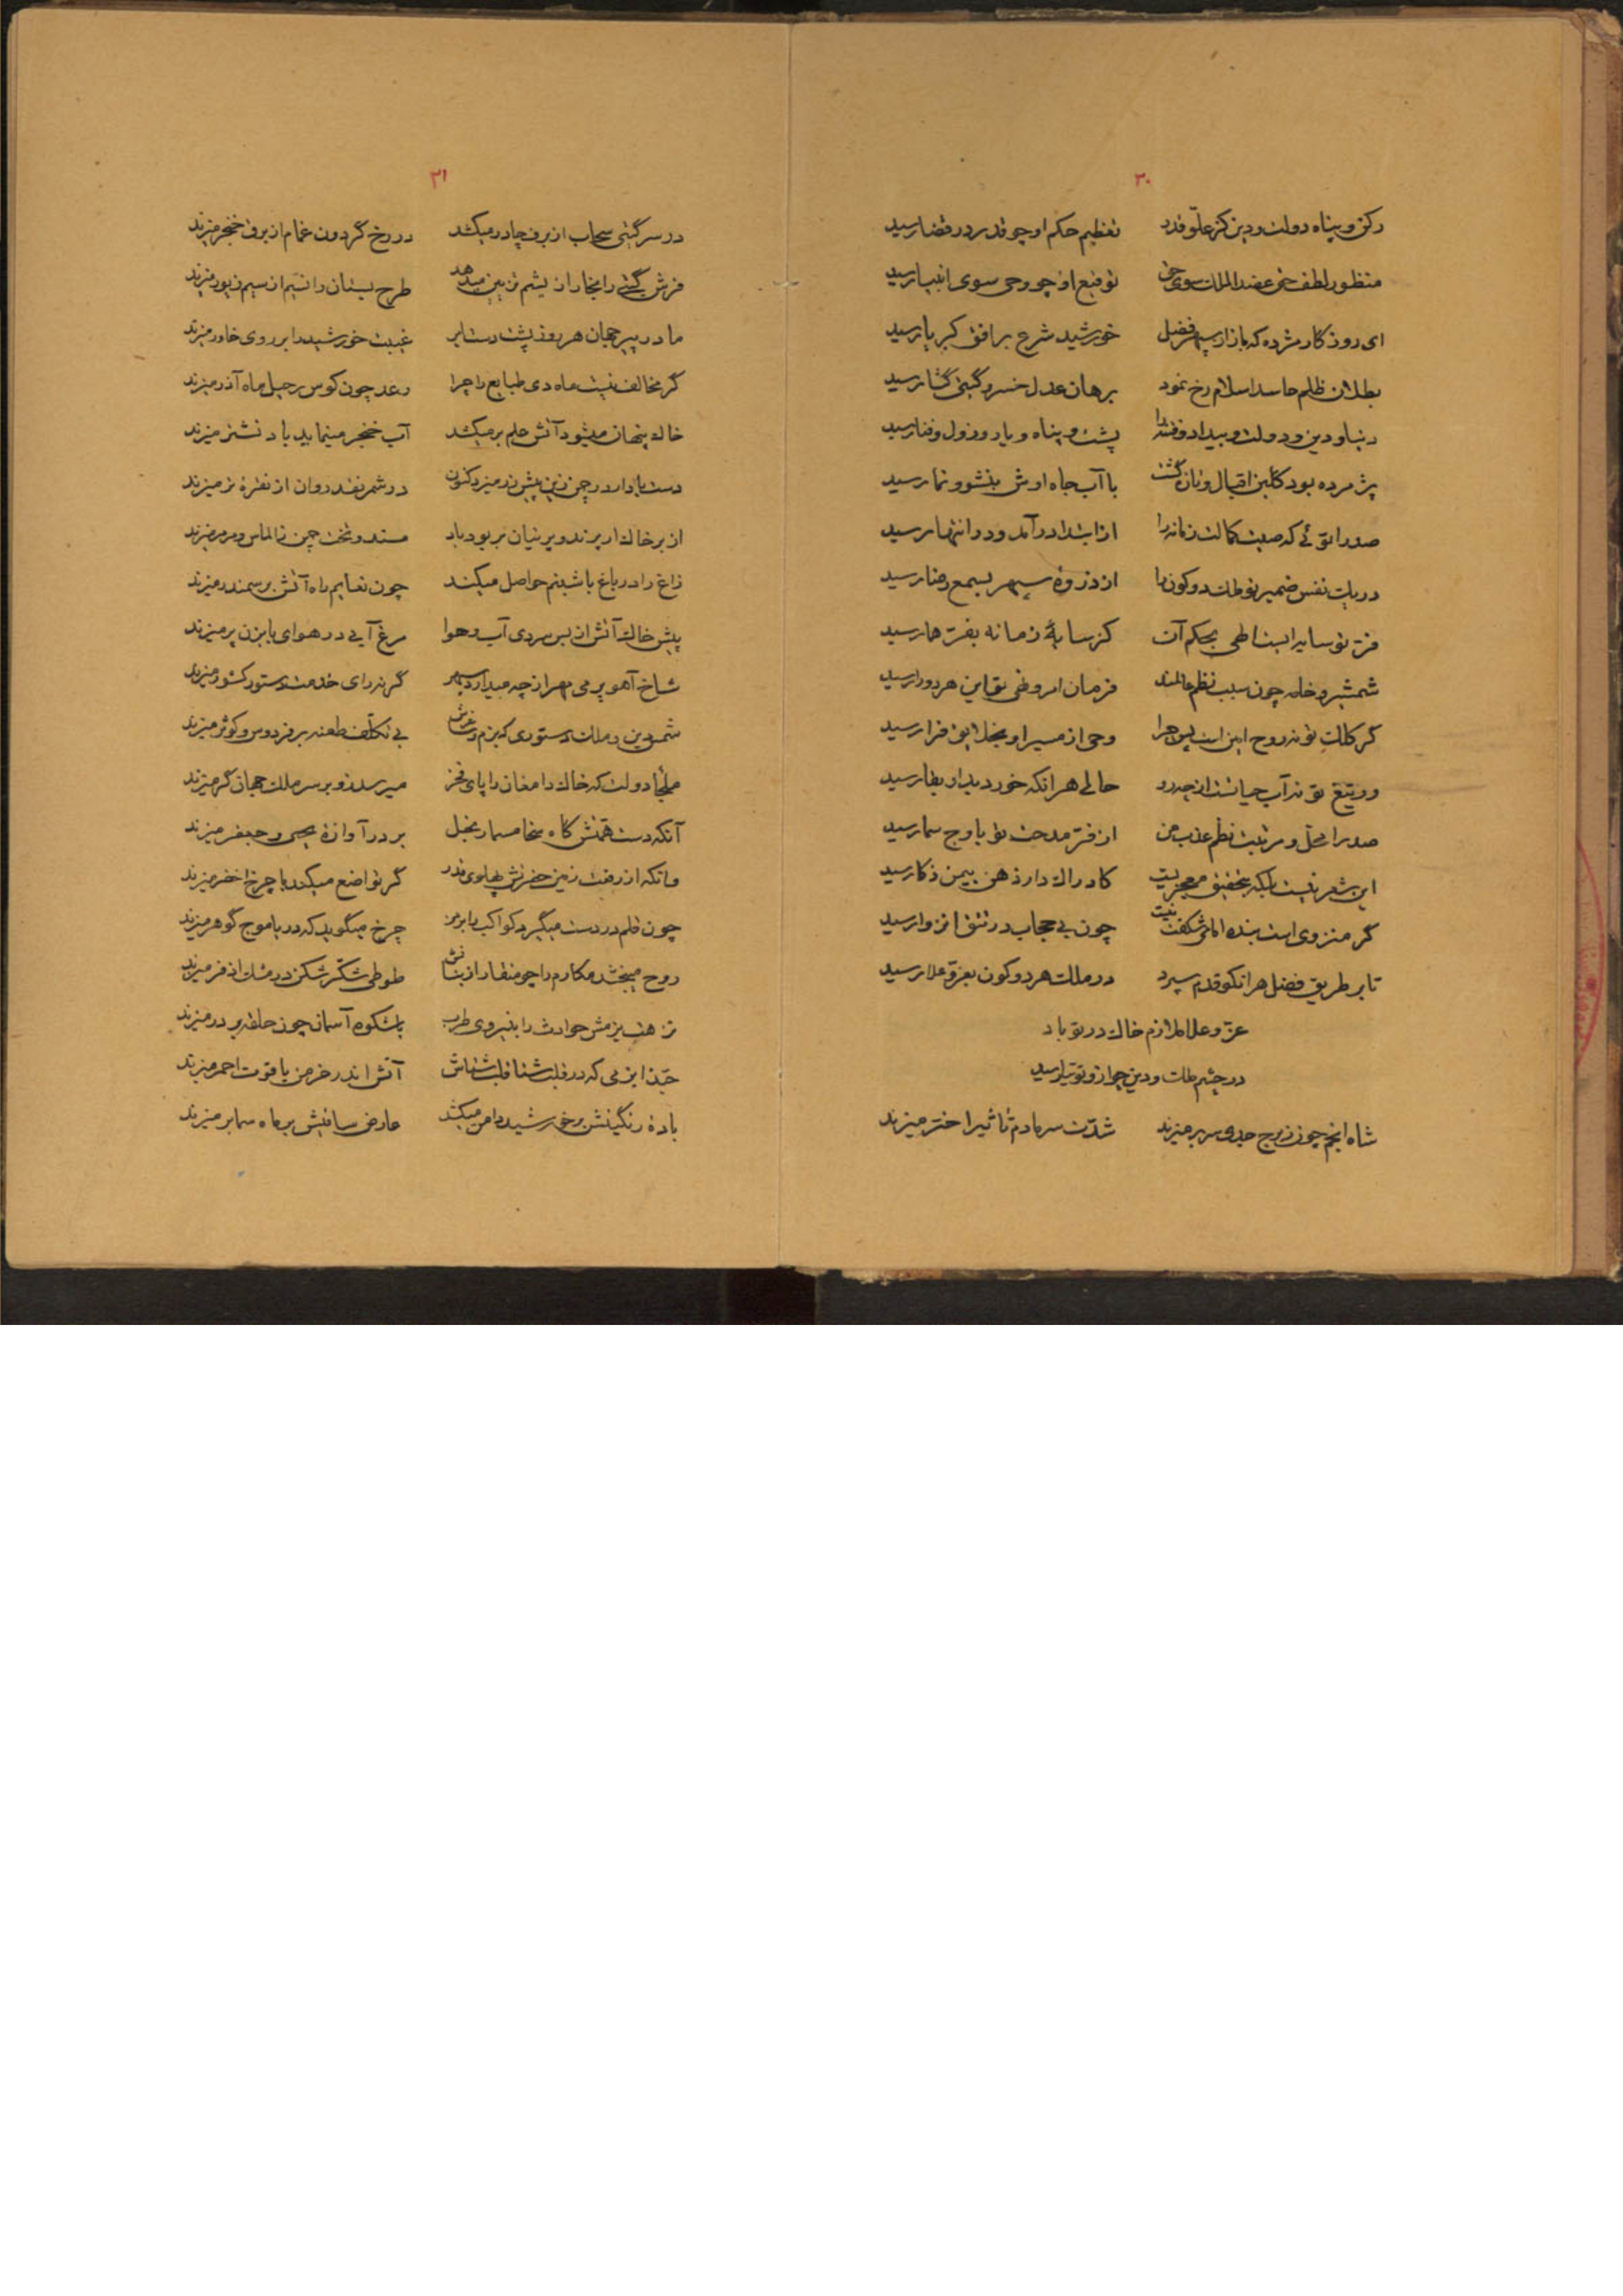 ۳۰
رکن و پناه دولت و دین کز علّو قدر تعظیم حکم او چو قدر در قضا رسید
منظور لطف حق عضد الملک سوی حق توقیع او چو وحی سوی انبیا رسید
ای روزکار مژده که باز از سپهر فضل خورشید شرع بر افق کبریا رسید
بطلان ظلم حاسد اسلام رخ نمود برهان عدل خسرو گیتی گشا رسید
دنیا و دین و دولت و بیداد و فتنه را پشت و پناه و یاور و زول و فنا رسید
پژمرده بود گلبن اقبال و زان گشت با آب جاه اوش بنشو و نما رسید
صدرا توئی که صیت کمالت زمانه را از ابتدا درآمد و در انتها رسید
در یک نفس ضمیر تو ملک دو کون را از ذروهٔ سپهر بسمع رضا رسید
فرّ تو سایه را بحکم آن کز سایهٔ زمانه بفرّ هما رسید
شمشیر و خامه چون سبب نظم عالمند فرمان امر و نهی تو این هر دو را رسید
گر کلک تو نه روح امین است پس چرا وحی از مسیر او بخلایق فرا رسید
ور تیغ تو نه آب حیاتست از چه رو حالی هر انکه خورد بدار بقا رسید
صدرا محلّ و مرتبت نظم عذب من از فرّ مدحت تو باوج سما رسید
این شعر نیست بلکه بتحقیق معجزیست کادراک دار ذهن بیمن ذکا رسید
گر منزوی است بنده امامی شگفت نیست چون بی حجاب در تتق انزوا رسید
تا بر طریق فضل هر انکو قدم سپرد در ملک هر دو کون بعزّ و علا رسید
عزّ و علا ملازم خاک در تو باد
در چشم ملک و دین چو ازو توتیا رسید
شاه انجم چون ز برج جدی سر بر میزند شدّت سرما دم تأثیر اختر میزند
۳۱
در سر گیتی سحاب از برف چادر میکشد در رخ گردون غمام از برق خنجر میزند
فرش گیتی را بخار از یشم تزیین میدهد طرح بستان را نسیم از سیم زیور میزند
مادر پیر جهان هر روز پشت دست ابر غیبت خورشید را بر روی خاور میزند
گر مخالف نیست ماه دی طبایع را چرا رعد چون کوس رحیل ماه آذر میزند
خاک پنهان میشود آتش علم بر میکشد آب خنجر مینماید باد نشتر میزند
دست باد ار در چمن زین پیش زر میزد کنون در شمر نقد روان از نقرهٔ تر میزند
از بر خاک ار پرند و پرنیان بربود باد مسند و تخت چمن ز الماس و مرمر میزند
زاغ را در باغ با شبنم حواصل میکند چون نعایم راه آتش بر سمندر میزند
پیش خاک آتش از بس سردی آب و هوا مرغ آبی در هوای بابزن پر میزند
شاخ آهو بر می مهر از چه میدارد سپهر گر نه رای خدمت دستور کشور میزند
شمس دین و ملک دستوری که بزم و عرش بی تکلّف طعنه بر فردوس و کوثر میزند
ملجأ دولت که خاک دامغان را پای فخر میرسد زو بر سر ملک جهان گر میزند
آنکه دست همّتش گاه سخا مسمار بخل بر در آوازهٔ یحیی و جعفر میزند
وانکه از رفعت زمین حضرتش پهلوی قدر گر تواضع میکند با چرخ اخضر میزند
چون قلم در دست میگیرد کواکب را بر من چرخ میگوید که دریا موج گوهر میزند
روح میبخشد مکارم را چو منقار از بنانش طوطی شکّر شکن در مشک اذفر میزند
زهت بزمش حوادث را بنیروی طرب باشکوه آسمان چون حلقه بر در میزند
حبّذا این می که در قلب شتا قلب شتاش آتش اندر خرمن یاقوت احمر میزند
بادهٔ رنگینش بر خورشید دامن میکشد عارض ساقیش بر ماه سما بر میزند